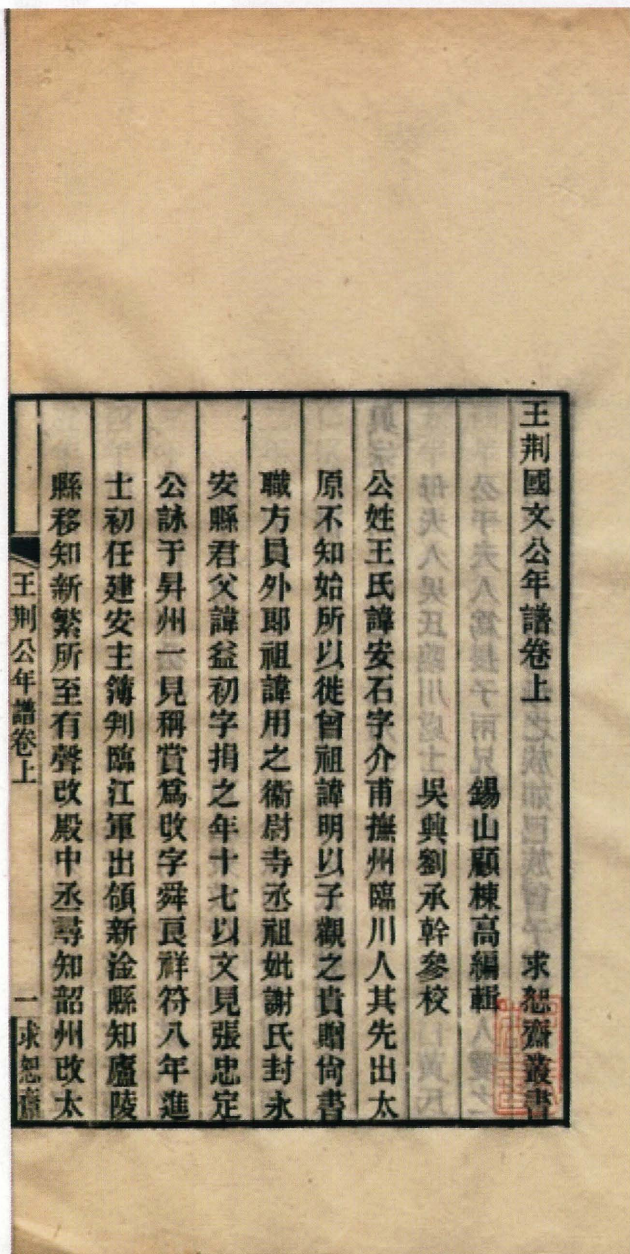 王荆國文公年譜卷上 求恕齋叢書
錫山顧棟高編輯
吳興劉承幹參校
公姓王氏諱安石字介甫撫州臨川人其先出太
原不知始所以徙曾祖諱明以子觀之貴贈尙書
職方員外郎祖諱用之衞尉寺丞祖妣謝氏封永
安縣君父諱益初字捐之年十七以文見張忠定
公詠于昇州一見稱賞爲改字舜良祥符八年進
士初任建安主簿判臨江軍出領新淦縣知廬陵
縣移知新繁所至有聲改殿中丞尋知韶州改太
王荆公年譜卷上 一 求恕齋